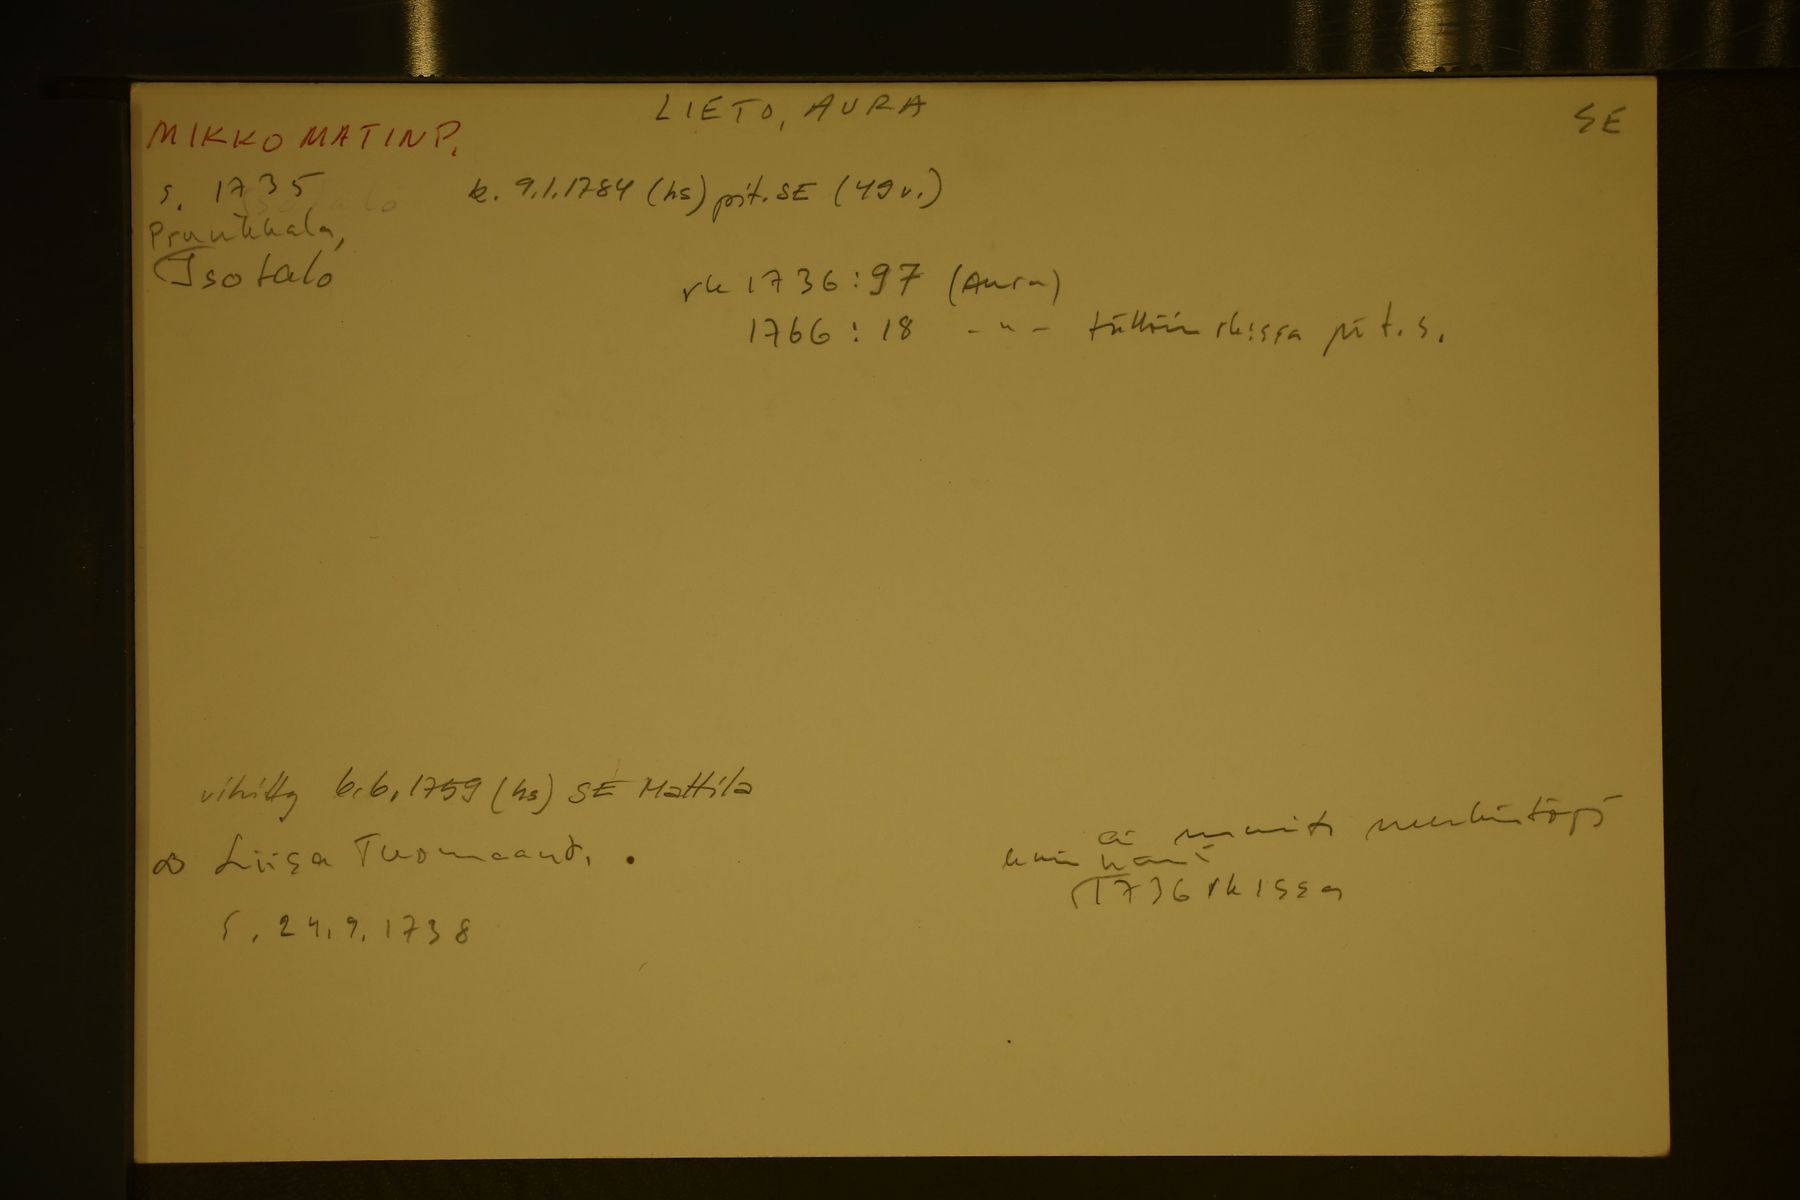 LIETO, AURA
SE
MIKKO MATINP.
s. 1735
k. 9.1.1784 (hs) pit. SE (49 v.)
Pruukkala,
Isotalo
rk 1736:97 (Aura)
1766:18 -"- tällöin rk:ssa pit. s.
vihitty 6.6.1759 (hs) SE Mattila
∞ Liisa Tuomaant.
s. 24.9.1738
ei muita merkintöjä
kuin nämä
1736 rkissa